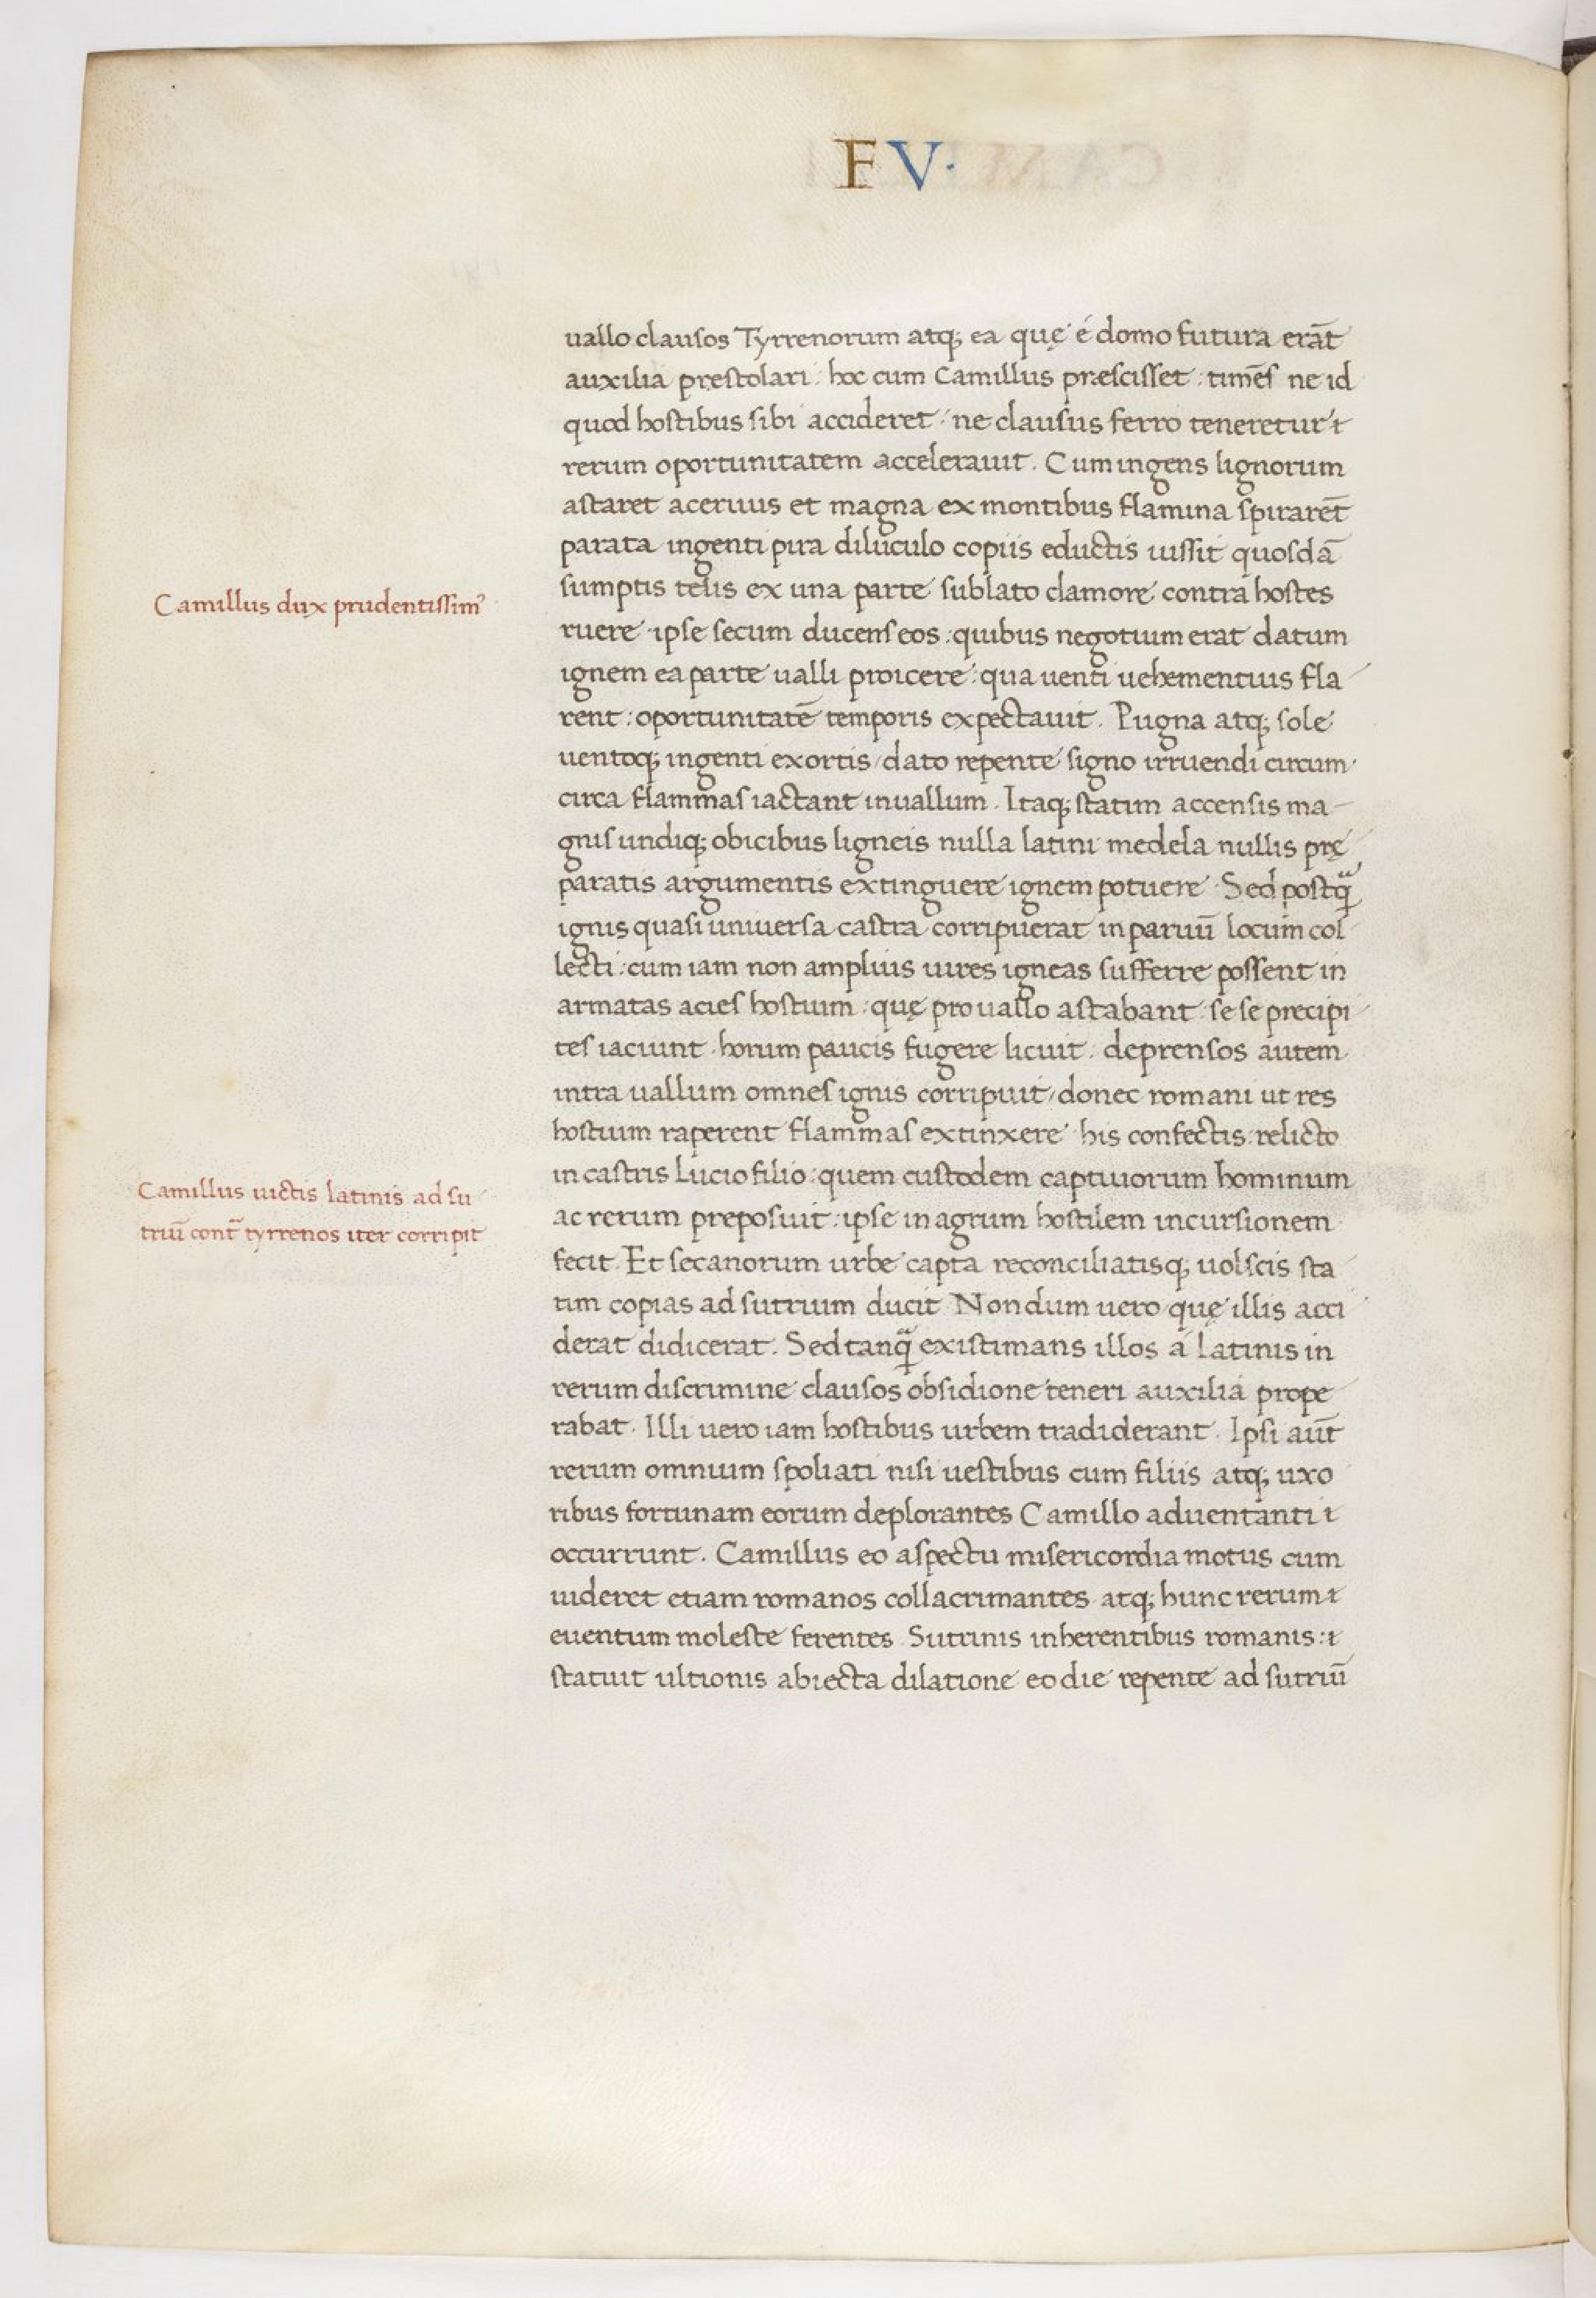 F V·
uallo clausos Tyrrenorum atq; ea quę é domo futura erāt
auxilia prestolari: hoc cum Camillus præscisset: timēs ne id
quod hostibus sibi accideret: ne clausus ferro teneretur
rerum oportunitatem accelerauit. Cum ingens lignorum
astaret aceruus et magna ex montibus flamina spirarēt
parata ingenti pira diluculo copiis eductis iussit quosdā
sumptis telis ex una parte sublato clamore contra hostes
Camillus dux prudentissim⁹
ruere ipse secum ducens eos: quibus negotium erat datum
ignem ea parte ualli proicere: qua uenti uehementius fla
rent: oportunitatē temporis expectauit. Pugna atq; sole
uentoq; ingenti exortis/ dato repente signo irruendi circum
circa flammas iactant in uallum. Itaq; statim accensis ma-
gnis undiq; obicibus ligneis nulla latini medela nullis prę
paratis argumentis extinguere ignem potuere. Sed postq̄ᵃ
ignis quasi uniuersa castra corripuerat in paruū locum col
lecti: cum iam non amplius uires igneas sufferre possent in
armatas acies hostium: quę pro uallo astabant: se se precipi
tes iaciunt. horum paucis fugere licuit: deprensos autem
intra uallum omnes ignis corripuit/ donec romani ut res
hostium raperent flammas extinxere his confectis: relicto
in castris Lucio filio: quem custodem captiuorum hominum
Camillus uictis latinis ad su
triū cont̄ tyrrenos iter corripit
ac rerum preposuit: ipse in agrum hostilem incursionem
fecit. Et secanorum urbe capta reconciliatisq; uolscis sta
tim copias ad sutrium ducit. Nondum uero quę illis acci
derat didicerat. Sed tanq̄ᵃ existimans illos á Latinis in
rerum discrimine clausos obsidione teneri auxilia prope
rabat. Illi uero iam hostibus urbem tradiderant. Ipsi aūt
rerum omnium spoliati nisi uestibus cum filiis atq; uxo
ribus fortunam eorum deplorantes Camillo aduentanti
occurrunt. Camillus eo aspectu misericordia motus cum
uideret etiam romanos collacrimantes atq; hunc rerum
euentum moleste ferentes Sutrinis inherentibus romanis:
statuit ultionis abiecta dilatione eo die repente ad sutriū